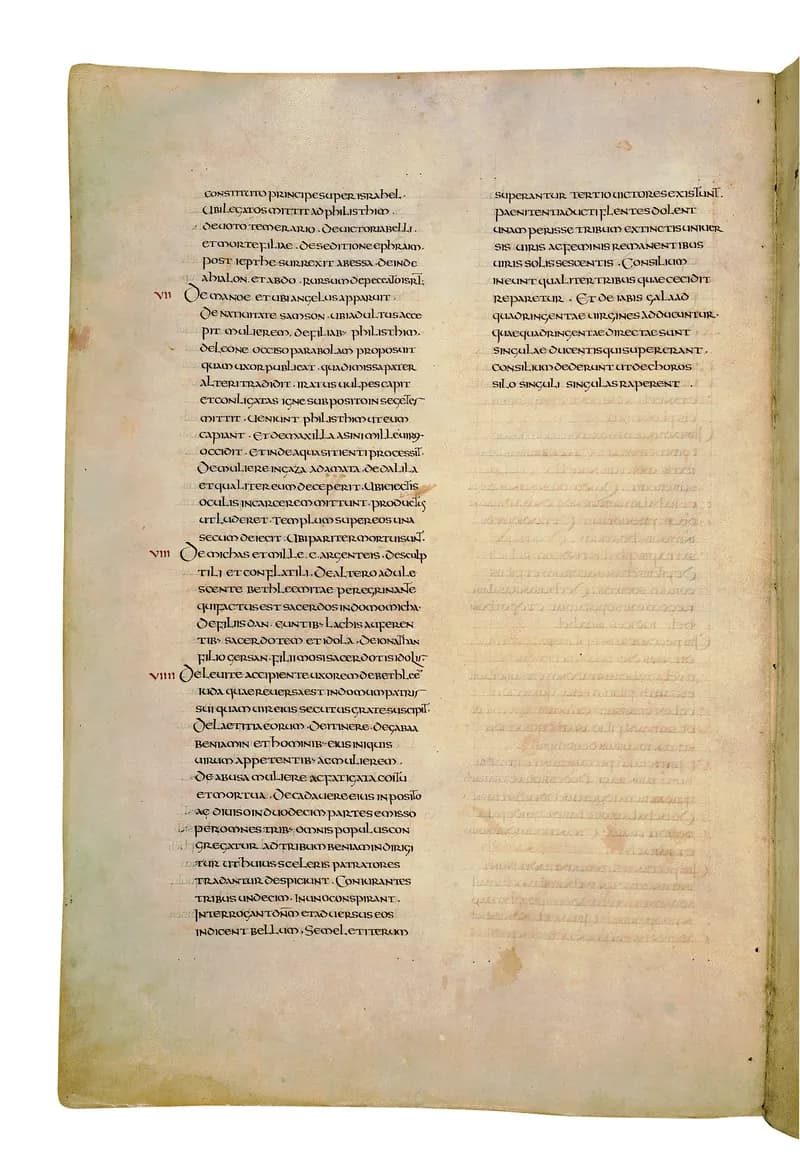 constituto principe super israhel ·
ubi legatos mittit ad philisthim ·
de uoto temerario · de uictoria belli ·
et morte filiae · de seditione ephraim ·
post iepthe surrexit abessa · deinde
ahialon · et abdo · rursum de peccato isrl̄;
VII De manoe et ubi angelus apparuit ·
De natiuitate samson · ubi adultus acce
pit mulierem · de filiab· philisthim ·
de leone occiso parabolam proposuit
quam uxor publicat · qua dimissa pater
alteri tradidit · iratus uulpes capit
et conligatas igne subposito in segetes
mittit · Ueniunt philisthim ut eum
capiant · Et de maxilla asini mille uiros
occidit · et inde aqua sitienti processit ·
De muliere in gaza adamata · de dalila
et qualiter eum deceperit · ubi eiectis
oculis in carcerem mittunt · productus
ut luderet · templum super eos una
secum deiecit · ubi pariter mortui sunt ·
VIII De michas et mille · c · argenteis · de sculp
tili et conflatili · De altero adule
scente bethleemitae peregrinante
qui factus est sacerdos in domo micha ·
De filiis dan · euntib· lachis auferen
tib· sacerdotem et idola · de ionathan
filio gersan · filii mosi sacerdotis idolis
VIIII De leuite accipiente uxorem de bethleē
iuda quae reuersa est in domum patris
sui quam uir eius secutus grate suscipit ·
De laetitia eorum · de itinere · de gabaa
beniamin et hominib· eius iniquis
uirum appetentib· ac mulierem ·
de abusa muliere ac fatigata coitu
et mortua · De cadauere eius inposito
ac diuiso in duodecim partes emisso
per omnes trib· omnis populus con
gregatur ad tribum beniamin dirigi
tur ut huius sceleris patratores
tradantur despiciunt · Coniurantes
tribus undecim · in uno conspirant ·
Interrogant dn̄m et aduersus eos
indicent bellum · Semel et iterum
superantur tertio uictores existunt ·
paenitentia ducti flentes dolent
unam perisse tribum extinctis uniuer
sis uiris ac feminis remanentibus
uiris solis sescentis · Consilium
ineunt qualiter tribus quae cecidit
reparetur · Et de iabis galaad
quadringentae uirgines adducuntur ·
quae quadringentae directae sunt
singulae ducentis qui supererant ·
consilium dederunt ut de choros
silo singuli singulas raperent ·